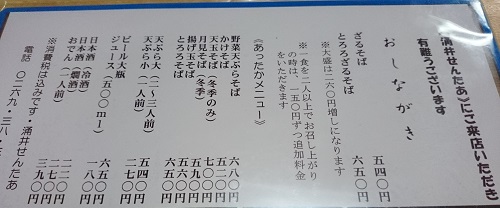 涌井せんたあ)にご来店いただき
有難うございます
おしながき
ざるそば 五四〇円
とろろざるそば 六五〇円
※大盛は二六〇円増しになります
※一食を二人以上でお召し上がり
の時は、一五〇円ずつ追加料金
をいただきます
《あったかメニュー》
野菜天ぷらそば 六八〇円
かけそば 五二〇円
天玉そば(冬季のみ) 七〇〇円
月見そば(冬季) 五九〇円
揚げ玉そば 五六〇円
とろろそば 六五〇円
天ぷら大(二~三人前) 五四〇円
天ぷら小(一人前) 二七〇円
ビール大瓶 六五〇円
ジュース(五〇〇ml) 一八〇円
日本酒(冷酒)
日本酒(燗酒) 二二〇円
おでん(一人前) 三九〇円
※消費税は込みです・涌井せんたあ
電話 〇二六九・三八・